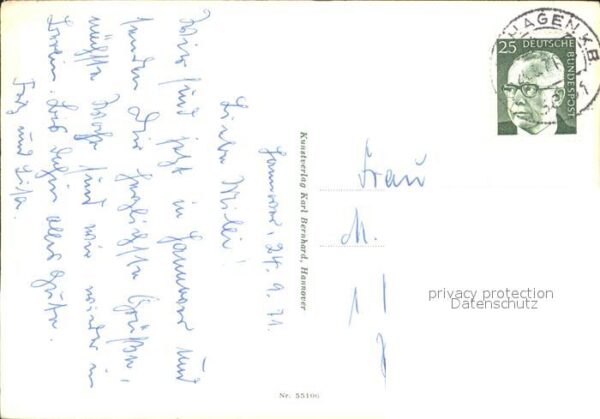 Hannover, 24.9.71.
Liebe Milli!
Wir sind jetzt in Hannover und
senden Dir herzlichste Grüße,
nächste Woche sind wir wieder in
Berlin. Bis dahin alles Gute.
und Lisa.
Kunstverlag Karl Bernhard, Hannover
Nr. 55106
HAGEN K.B.
25 DEUTSCHE
BUNDESPOST
Frau
M.
privacy protection
Datenschutz